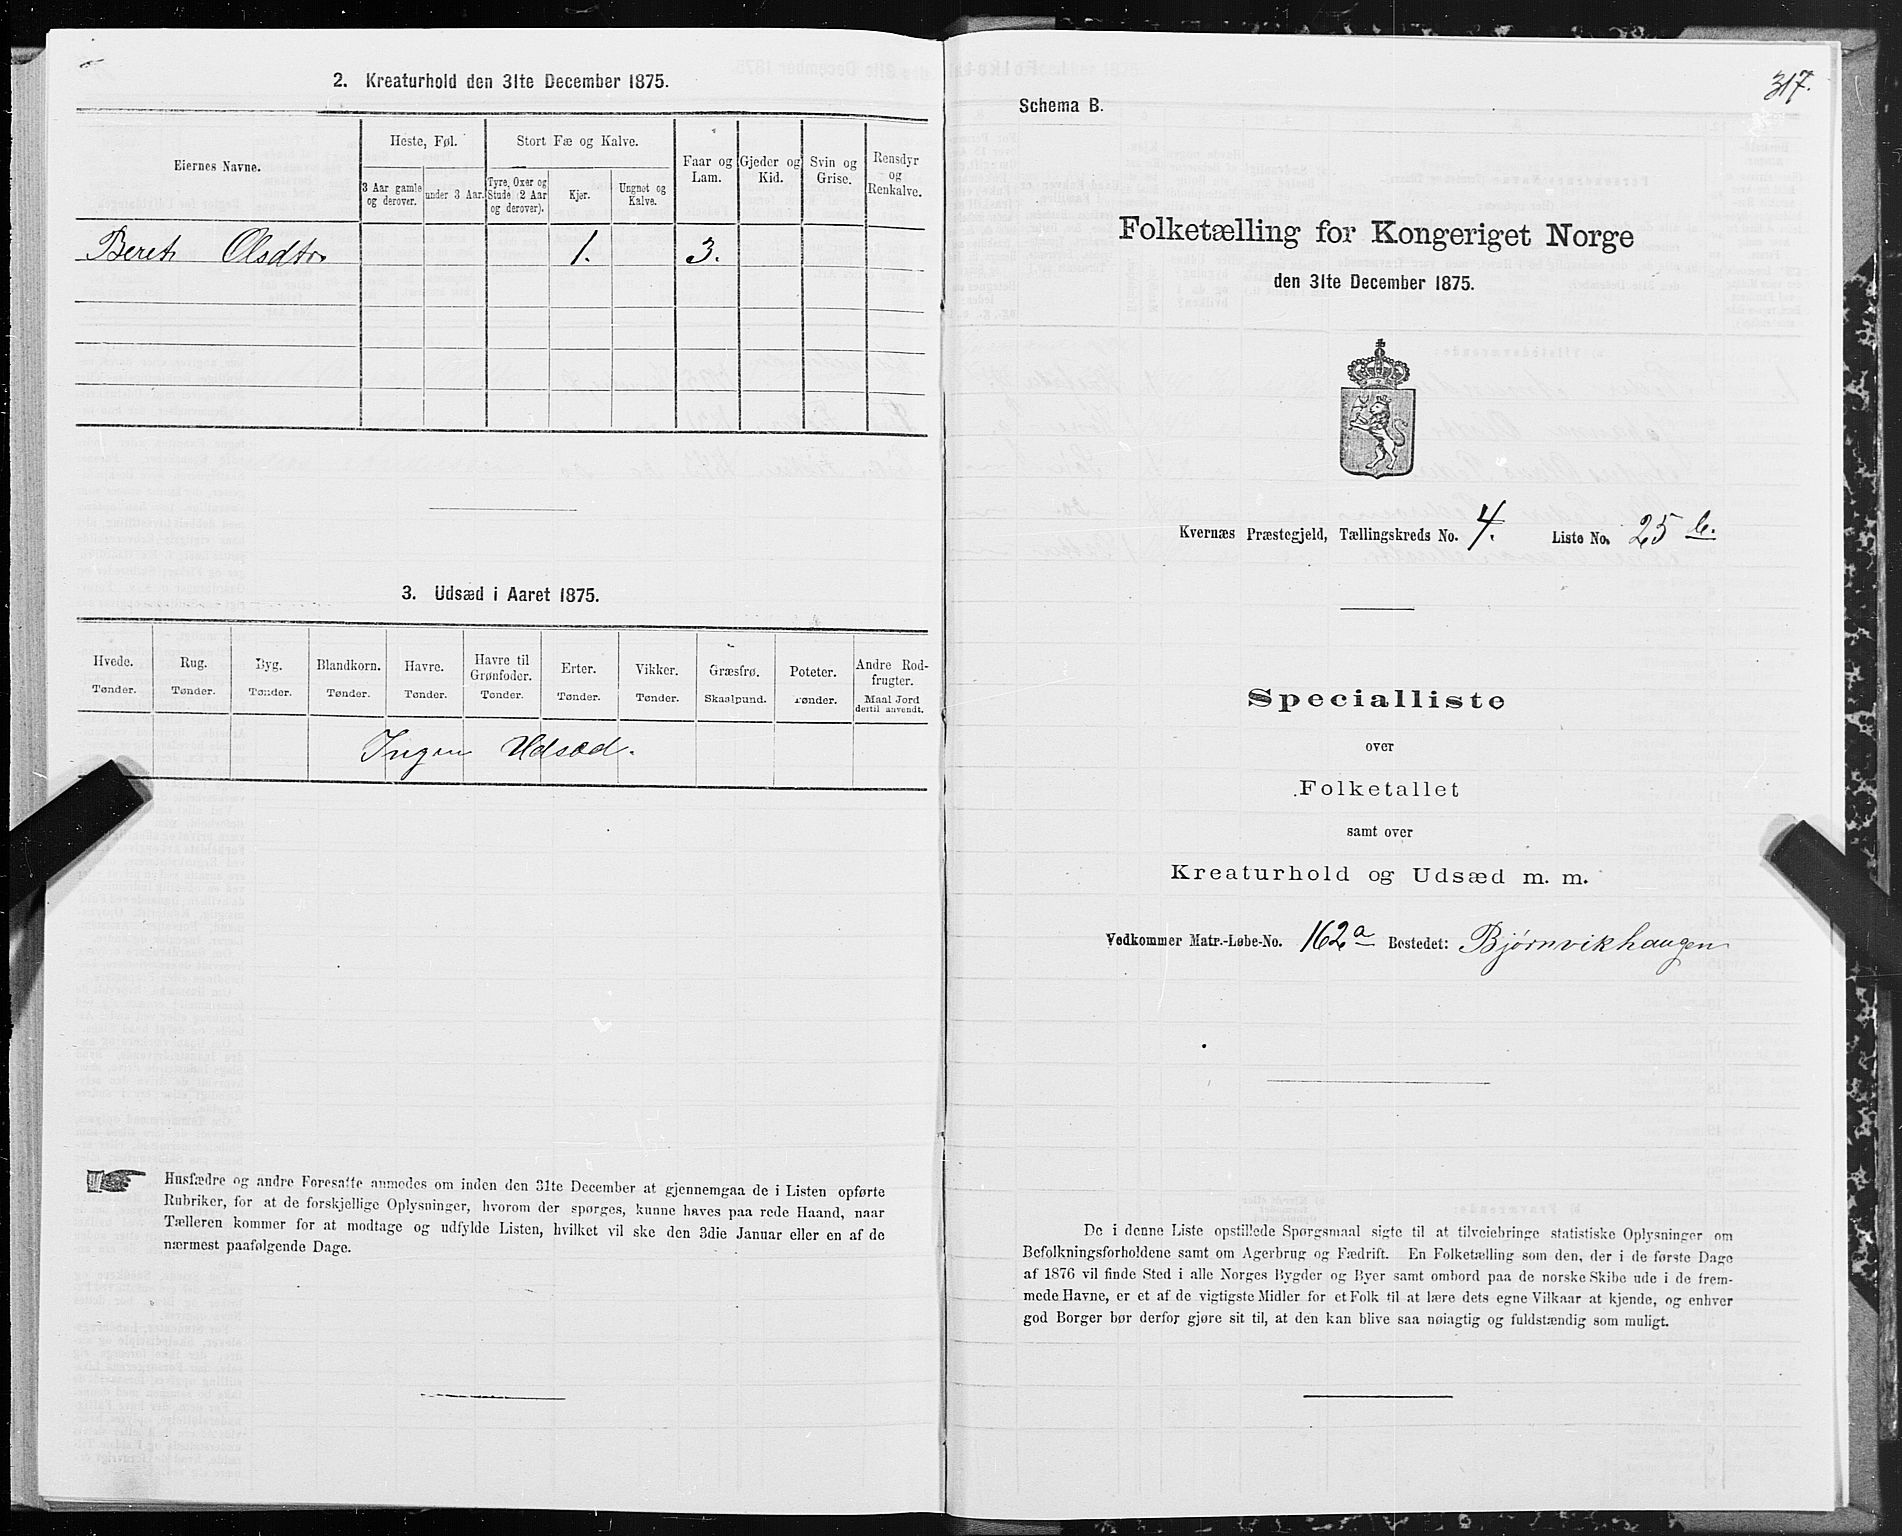 2. Kreaturhold den 31te December 1875.
Eiernes Navne.
Heste, Føl.
Stort Fæ og Kalve.
Faar og Lam.
Gjeder og Kid.
Svin og Grise.
Rensdyr og Renkalve.
3 Aar gamle og derover.
under 3 Aar.
Tyre, Oxer og Stude (2 Aar og derover).
Kjør.
Ungnøt og Kalve.
Beret Olsdtr 1. 3.
3. Udsæd i Aaret 1875.
Hvede. Rug. Byg. Blandkorn. Havre. Havre til Grønfoder. Erter. Vikker. Græsfrø. Poteter. Andre Rodfrugter.
Tønder. Tønder. Tønder. Tønder. Tønder. Tønder. Tønder. Tønder. Skaalpund. Tønder. Maal Jord dertil anvendt.
Ingen Udsæd.
Husfædre og andre Foresatte anmodes om inden den 31te December at gjennemgaa de i Listen opførte
Rubriker, for at de forskjellige Oplysninger, hvorom der spørges, kunne haves paa rede Haand, naar
Tælleren kommer for at modtage og udfylde Listen, hvilket vil ske den 3die Januar eller en af de
nærmest paafølgende Dage.
317.
Schema B.
Folketælling for Kongeriget Norge
den 31te December 1875.
Kvernæs Præstegjeld, Tællingskreds No. 4. Liste No. 25 b.
Specialliste
over
Folketallet
samt over
Kreaturhold og Udsæd m. m.
Vedkommer Matr.-Løbe-No. 162a Bostedet: Bjørnvikhaugen
De i denne Liste opstillede Spørgsmaal sigte til at tilveiebringe statistiske Oplysninger om
Befolkningsforholdene samt om Agerbrug og Fædrift. En Folketælling som den, der i de første Dage
af 1876 vil finde Sted i alle Norges Bygder og Byer samt ombord paa de norske Skibe ude i de frem-
mede Havne, er et af de vigtigste Midler for et Folk til at lære dets egne Vilkaar at kjende, og enhver
god Borger bør derfor gjøre sit til, at den kan blive saa nøiagtig og fuldstændig som muligt.